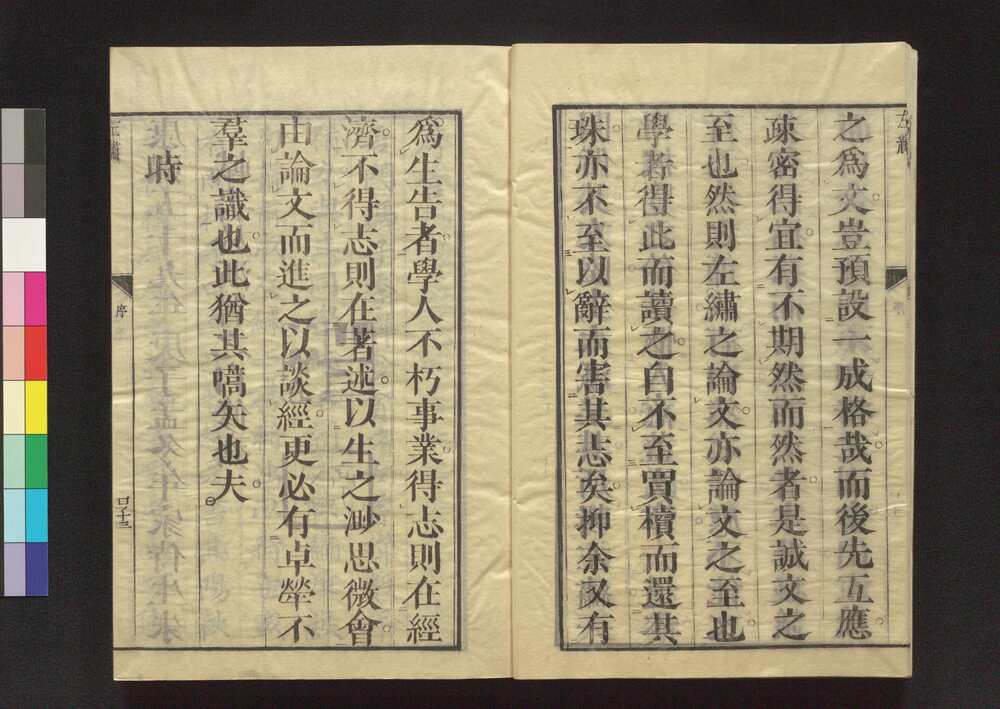 之爲文豈預設一成格哉而後先互應
疎密得宜有不期然而然者是誠文之
至也然則左繡之論文亦論文之至也
學者得此而讀之自不至買櫝而還其
珠亦不至以辭而害其志矣抑余又有
爲生告者學人不朽事業得志則在經
濟不得志則在著述以生之渺思微會
由論文而進之以談經更必有卓犖不
羣之識也此猶其嚆矢也夫
時
序
口十三